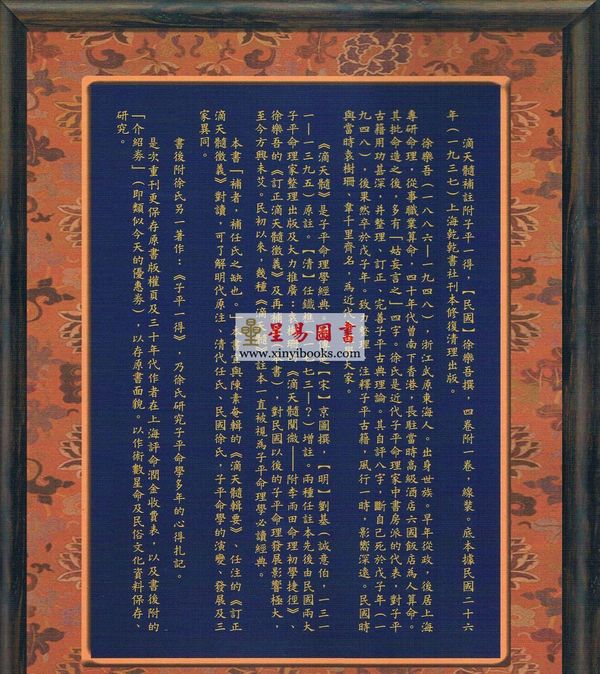 滴天髓補註附子平一得，【民國】徐樂吾撰，四卷附一卷，線裝。底本據民國二十六
年（一九三七）上海乾乾書社刊本修復清理出版。
徐樂吾（一八八六—一九四八），浙江武原東海人。出身世族。早年從政，後居上海
專研命理，從事職業算命，四十年代曾南下香港，長駐當時高級酒店六國飯店為人算命。
其批命造之後，多有「姑妄言之」四字。徐氏是近代子平命理家中書房派的代表，對子平
古籍用功甚深，并整理、訂正、完善子平古典理論。其自評八字，斷自己死於戊子年（一
九四八），後果然卒於戊子年。致力整理、注釋子平古籍，風行一時，影響深遠。民國時
與當時袁樹珊、韋千里齊名，為近代
大家。
《滴天髓》是子平命理學經典。
【宋】京圖撰，【明】劉基（誠意伯，一三一
一—一三九五）原註。【清】任鐵樵
七七三—？）增註。兩種任註本先後由民國兩大
子平命理家整理出版及大力推廣：袁樹珊
《滴天髓闡微——附李雨田命理初學捷徑》、
徐樂吾的《訂正滴天髓徵義》及再補
本書），對民國以後的子平命理發展影響極大，
至今方興未艾。民初以來，幾種《滴
註本一直被視為子平命理學必讀經典。
本書「補者，補任氏之缺也。」本書
與陳素庵輯的《滴天髓輯要》、任注的《訂正
滴天髓徵義》對讀，可了解明代原注、清代任氏、民國徐氏，子平命學的演變、發展及三
家異同。
書後附徐氏另一著作：《子平一得》，乃徐氏研究子平命學多年的心得扎記。
是次重刊更保存原書版權頁及三十年代作者在上海評命潤金收費表，以及書後附的
「介紹券」（即類似今天的優惠券），以存原書面貌。以作術數星命及民俗文化資料保存、
研究。
星易圖書
www.xinyibooks.com